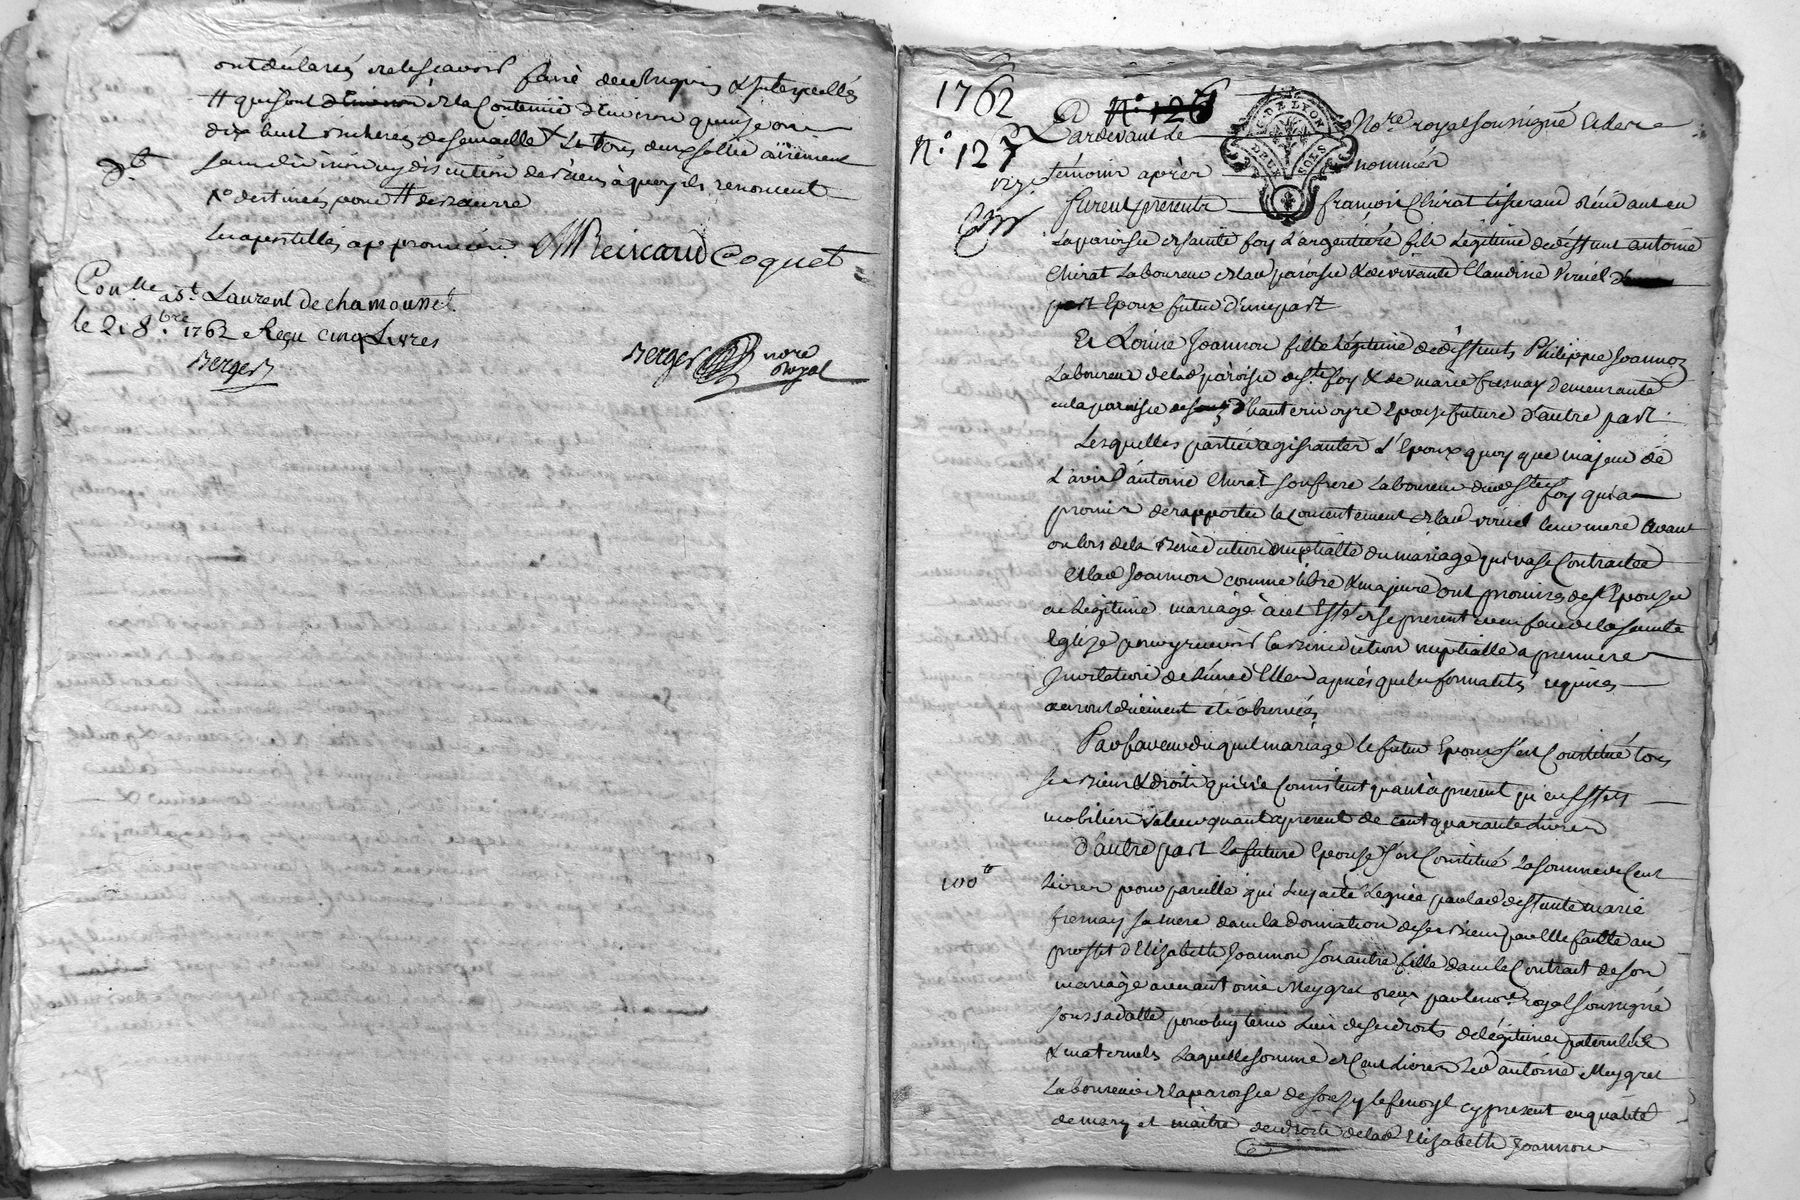 ont déclarés ne le scavoir faire de ce Requis & Interpellés
# qui sont de la Contenue d'Environ quinze ou
dix huit bicherés de semaille
sans division ny discution de biens à quoy ils renoncent
destinées pour # de beurre
Les apostilles approuvées. Reincaud Coquet
Con.lle a S.t Laurent de chamousset
le 2. 8.bre 1762 Reçu cinq Livres
Berger
Berger nore
Royal
1762
N.o 126
N.o 127
127.
DE LYON
DEUX SOLS
Pardevant le No.re royal soussigné & les
témoins après nommés
furent presents françois Chirat tisserand résidant en
La paroisse de sainte foy L'argentière fils Légitime de déffunt antoine
Chirat Laboureur de lad paroisse & de vivante Claudine viricel
part Epoux futur d'une part
Et Louise Joannon fille Légitime de déffunts Philippe Joannon
Laboureur de lad paroisse de S.te foy & de marie fresnay demeurante
en la paroisse de d'hauterivoyre Epouse future d'autre part.
Lesquelles parties agissantes L'Epoux quoy que majeur de
L'avis d'antoine Chirat son frere Laboureur dud Ste foy qui a
promis de rapporter le consentement de lad viricel leur mere avant
ou lors de la Bénédiction nuptialle du mariage qui va se Contracter
Et lad Joannon comme libre & majeure ont promis de s'Epouser
en Légitime mariage à cet Effet de se present er en face de la sainte
Eglise pour y recevoir la Bénédiction nuptialle a premiere
Invitation de L'un d'Elles après que les formalités requises
auront dûement été observées
En faveur du quel mariage le futur Epoux s'est Constitué tous
ses Biens & droits qui ne Consistent quant à present qu'en Effets
mobiliers valeur quant a present de cent quarante Livres
D'autre part La future Epouse s'est Constitué La somme de Cent
100.tt
Livres pour pareille qui Luy a été Leguée par lad deffunte marie
fresnay sa mere dans la Donnation de ses Biens par Elle faitte au
proffit d'Elizabeth Joannon son autre fille dans le Contrat de son
mariage avec antoine Meygret reçu par le no.re royal soussigné
sous sa datte pour luy tenir Lieu de ses droits de légitimes paternels
& maternels Laquelle somme de Cent Livres Led antoine Meygret
Laboureur de la paroisse de Souzy cy present en qualité
de mary et maitre des droits de lad Elizabeth Joannon